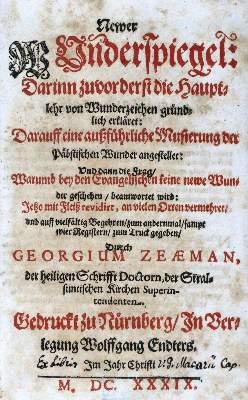 Newer
Wunderspiegel:
Darinn zuvorderst die Haupt-
lehr von Wunderzeichen gründ-
lich erkläret:
Darauff eine außführliche Musterung der
Päbstischen Wunder angestellet:
Und dann die Frag/
Warumb bey den Evangelischen keine newe Wun-
der geschehen / beantwortet wird:
Jetzo mit Fleiß revidirt, an vielen Orten vermehret/
und auff vielfältig Begehren/ zum andernmal/ sampt
zwier Registern/ zum Truck gegeben/
Durch
GEORGIUM ZEÆMAN,
der heiligen Schrifft Doctorn, der Stral-
suntischen Kirchen Superin-
tendenten.
Gedruckt zu Nürnberg/ In Ver-
legung Wolffgang Endters.
Ex Libris Im Jahr Christi Cap.
M. DC. XXXIX.